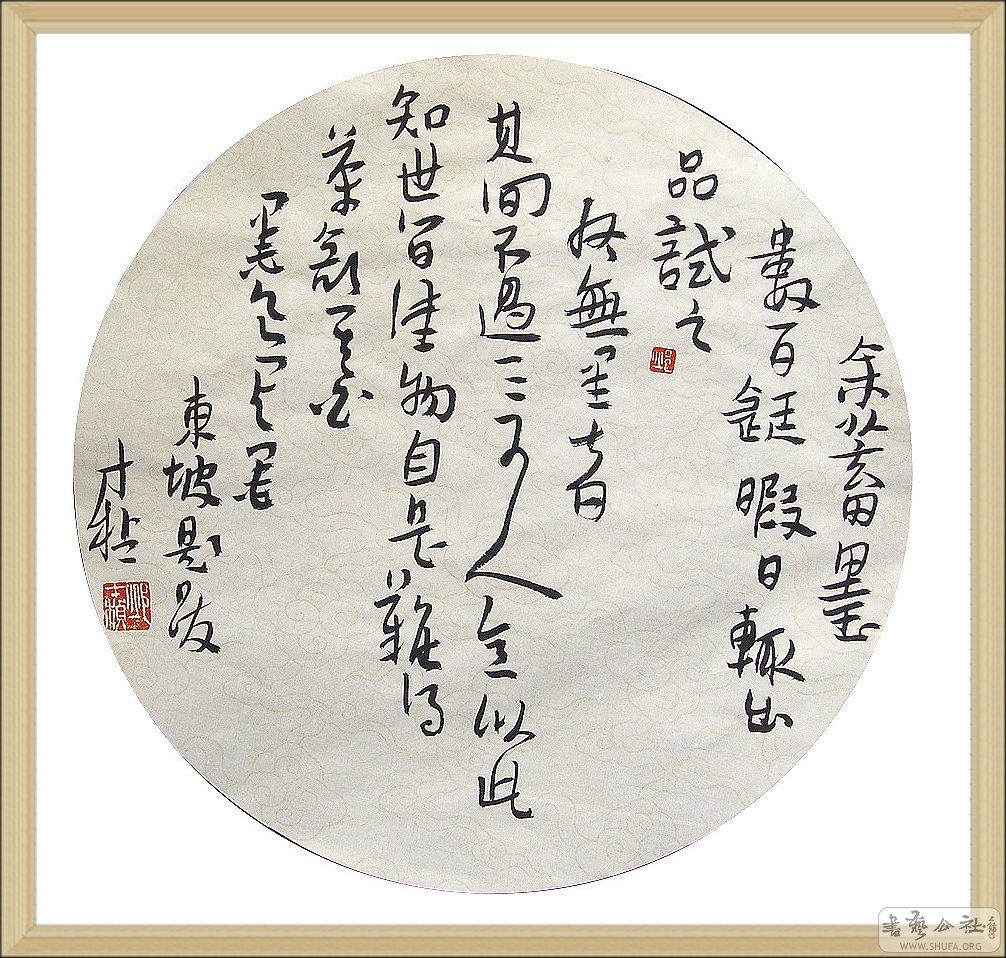 余蓄墨
數百鋌暇日輒出
品試之
終無黑者
其間不過一二可人意以此
知世間佳物自是難得
茶欲其白
墨欲其黑
東坡題跋
才
書藝公社
WWW.SHUFA.ORG